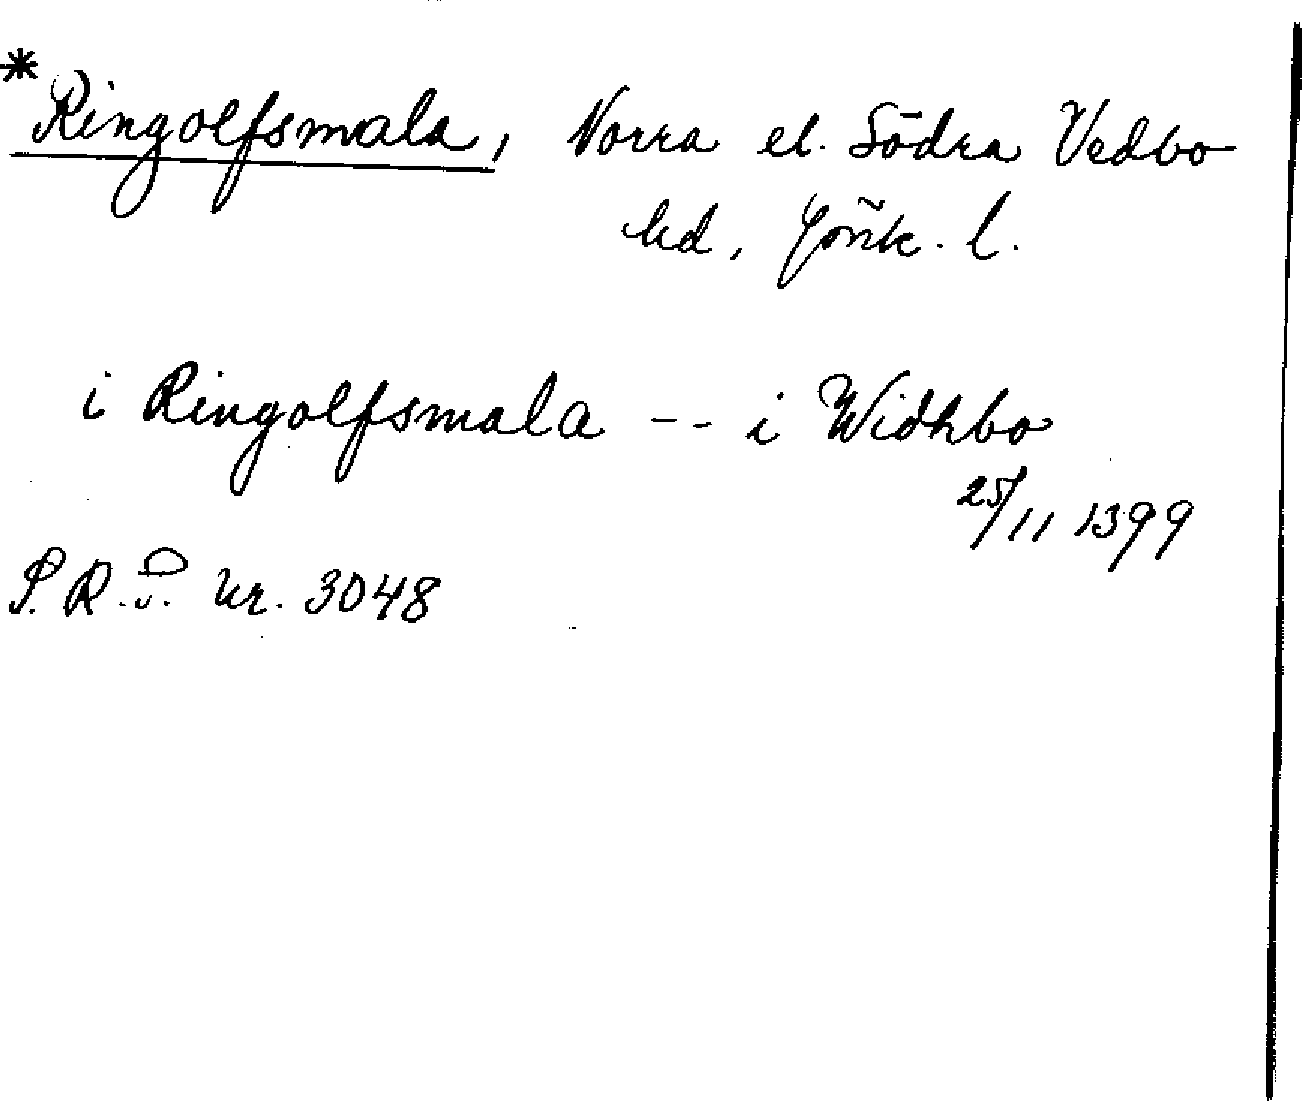 *Ringolfsmala, Norra el. Södra Vedbo
hd, Jönk. l.
i Ringolfsmala -- i Widhbo
25/11 1399
S.R.P. nr. 3048